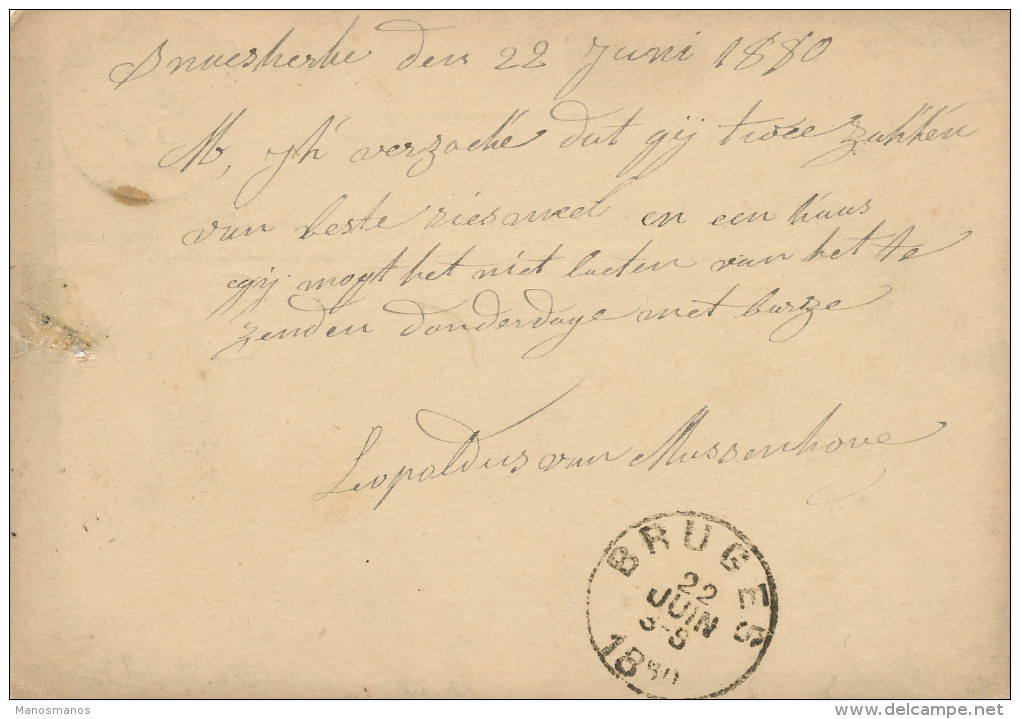 Snaeskerke den 22 Juni 1880
M, ik verzoeke dat gij twee zakken
van beste riesmeel en een kaas
gij mogt het niet laeten van het te
zenden donderdage met burze
Leopoldus van Massenhove
BRUGES
22
JUIN
1880
Manosmanos
delcampe.net